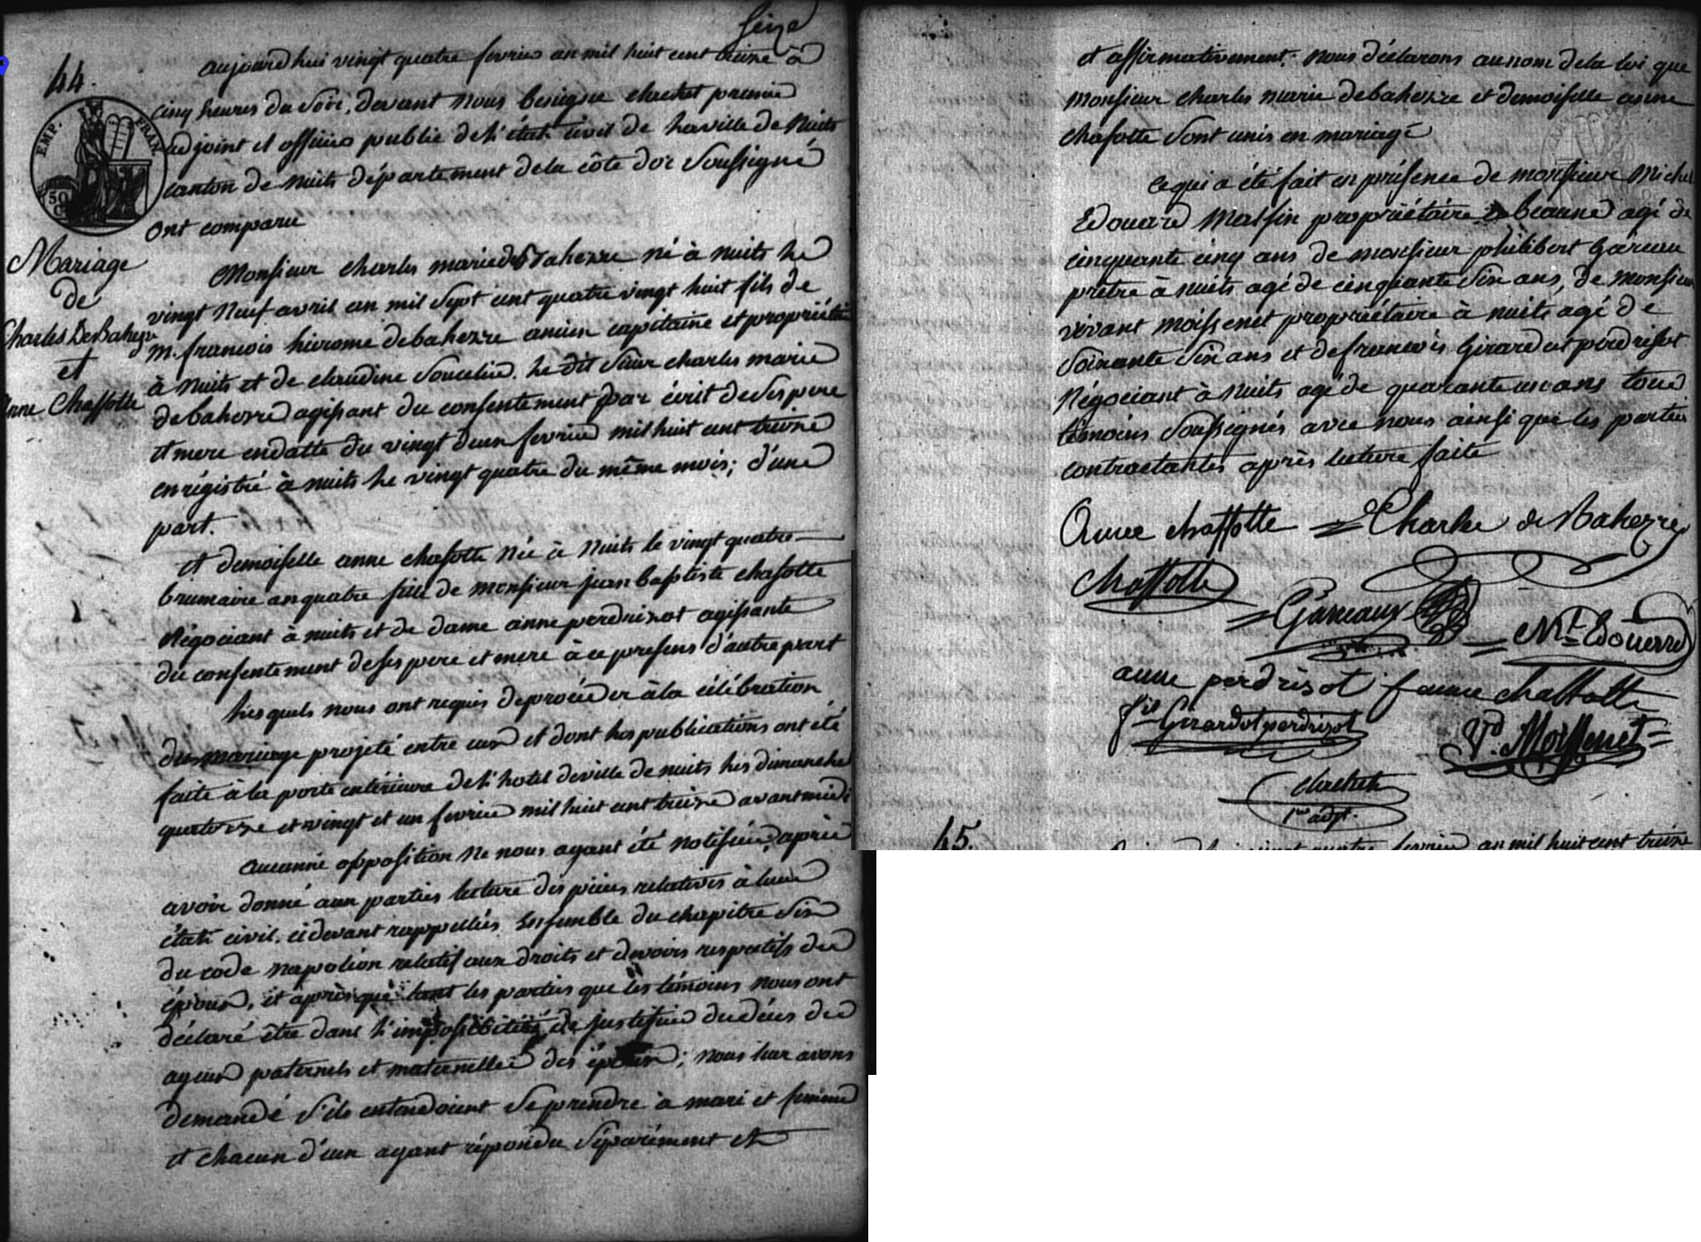 Seize
44.
EMP. FRAN.
50
C
Mariage
de
Charles DeBahezre
et
Anne Chaffotte
aujourdhui vingt quatre fevrier an mil huit cent treize à
cinq heures du soir, devant nous benigne chachet premier
adjoint et officier public de l'état civil de la ville de Nuits
canton de nuits département de la côte d'or soussigné
ont comparu
Monsieur charles marie de Bahezre né à nuits le
vingt neuf avril an mil sept cent quatre vingt huit fils de
m. francois hierome debahezre ancien capitaine et propriétaire
à nuits et de claudine Soucelier. le dit sieur charles marie
debahezre agissant du consentement par écrit de ses pere
et mere en datte du vingt deux fevrier mil huit cent treize
enrégistré à nuits le vingt quatre du même mois; d'une
part.
et demoiselle anne chafotte née à Nuits le vingt quatre
brumaire an quatre fille de monsieur jean baptiste chafotte
Négociant à nuits et de dame anne perdrizot agissante
du consentement de ses pere et mere à ce presens d'autre part
lesquels nous ont requis de procéder à la célébration
du mariage projeté entre eux et dont les publications ont été
faite à la porte extérieure de l'hotel de ville de nuits les dimanche
quatorze et vingt et un fevrier mil huit cent treize avant midi
aucunne opposition ne nous ayant été notifiée, après
avoir donné aux parties lecture des pieces relatives à leur
état civil. ci devant rappellées ensemble du chapitre six
du code napoléon relatif aux droits et devoirs respectifs des
époux, et après que tant les parties que les témoins nous ont
déclaré être dans l'impossibilité de justifier du décès des
ayeux paternels et maternelles des époux; nous leur avons
demandé s'ils entendoient se prendre à mari et femme
et chacun d'eux ayant répondu séparément et
et affirmativement. nous déclarons au nom de la loi que
monsieur charles marie debahezre et demoiselle anne
chafotte sont unis en mariage
ce qui a été fait en présence de monsieur Michel
Edouard Massin propriétaire à beaune agé de
cinquante cinq ans de monsieur philibert Gareau
prêtre à nuits agé de cinquante six ans, de monsieur
vivant moissenet propriétaire à nuits agé de
soixante six ans et de francois Girardot perdrisot
Négociant à nuits agé de quarante un ans tous
témoins soussignés avec nous ainsi que les parties
contractantes après lecture faite
Anne chaffotte Charles de Bahezre
Chaffotte
Gareaux
Ml Edouard
anne perdrizot femme chaffotte
fis Girardot perdrizot
Vt. Moissenet
Chachet
1er adjt.
45.
fevrier an mil huit cent treize